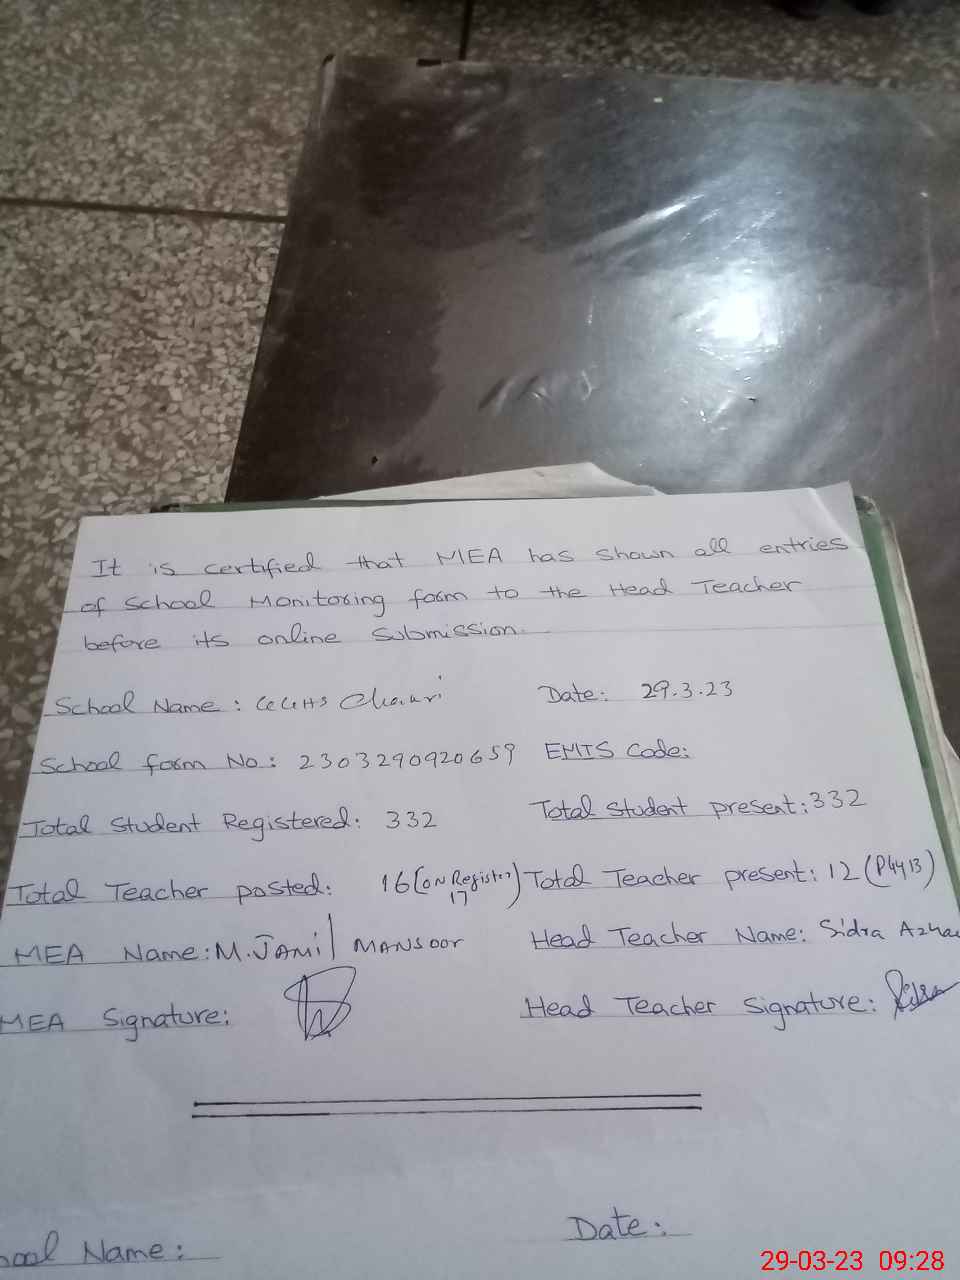 It is certified that MEA has shown all entries
of School Monitoring form to the Head Teacher
before its online Submission.
School Name: GGHS Date: 29.3.23
School form No: 2303290920659 EMIS Code:
Total Student Registered: 332 Total Student present: 332
Total Teacher posted: 16 (on Register 17) Total Teacher present: 12
MEA Name: M. JAMil MANSOOR Head Teacher Name: Sidra Azha
MEA Signature: Head Teacher Signature:
hool Name: Date:
29-03-23 09:28